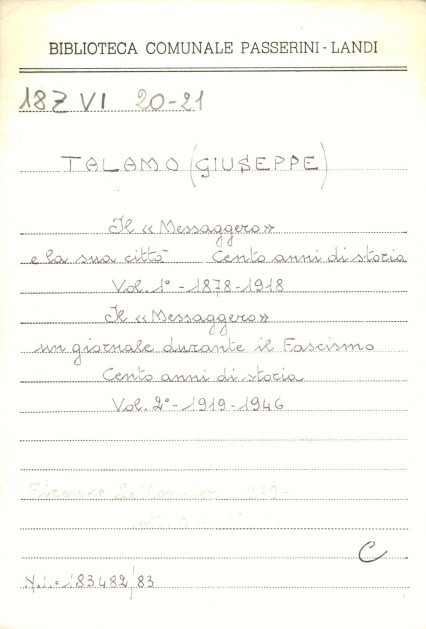 BIBLIOTECA COMUNALE PASSERINI-LANDI
18Z VI 20-21
TALAMO (GIUSEPPE)
Il «Messaggero»
e la sua città Cento anni di storia
Vol. 1° - 1878-1918
Il «Messaggero»
un giornale durante il Fascismo
Cento anni di storia
Vol. 2° - 1919-1946
Firenze Le Monnier
C
N.i. = 183482/83